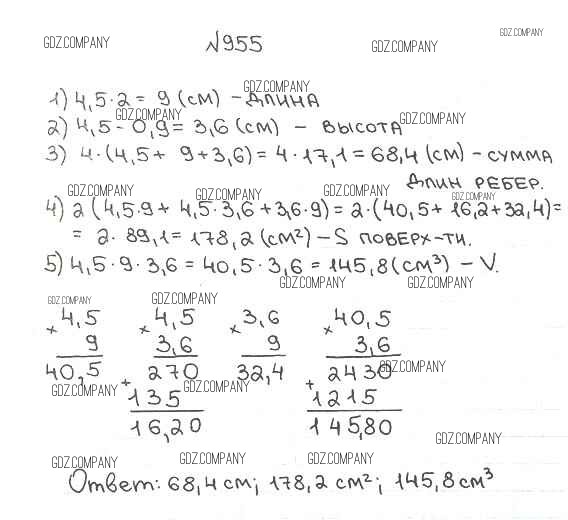 GDZ.COMPANY
GDZ.COMPANY №955 GDZ.COMPANY
GDZ.COMPANY
1) 4,5·2 = 9 (см) – длина
GDZ.COMPANY GDZ.COMPANY
2) 4,5 - 0,9 = 3,6 (см) – высота
3) 4·(4,5 + 9+3,6) = 4·17,1 = 68,4 (см) – сумма
длин ребер.
GDZ.COMPANY GDZ.COMPANY GDZ.COMPANY GDZ.COMPANY
4) 2 (4,5·9 + 4,5·3,6 + 3,6·9) = 2·(40,5 + 16,2 + 32,4) =
= 2·89,1 = 178,2 (см²) – S поверх-ти.
5) 4,5·9·3,6 = 40,5·3,6 = 145,8 (см³) – V.
GDZ.COMPANY GDZ.COMPANY
GDZ.COMPANY GDZ.COMPANY
4,5 4,5 3,6 40,5
× 9 × 3,6 × 9 × 3,6
40,5 270 32,4 2430
GDZ.COMPANY GDZ.COMPANY GDZ.COMPANY
+ 135 + 1215
16,20 145,80
GDZ.COMPANY
GDZ.COMPANY GDZ.COMPANY GDZ.COMPANY
Ответ: 68,4 см; 178,2 см²; 145,8 см³